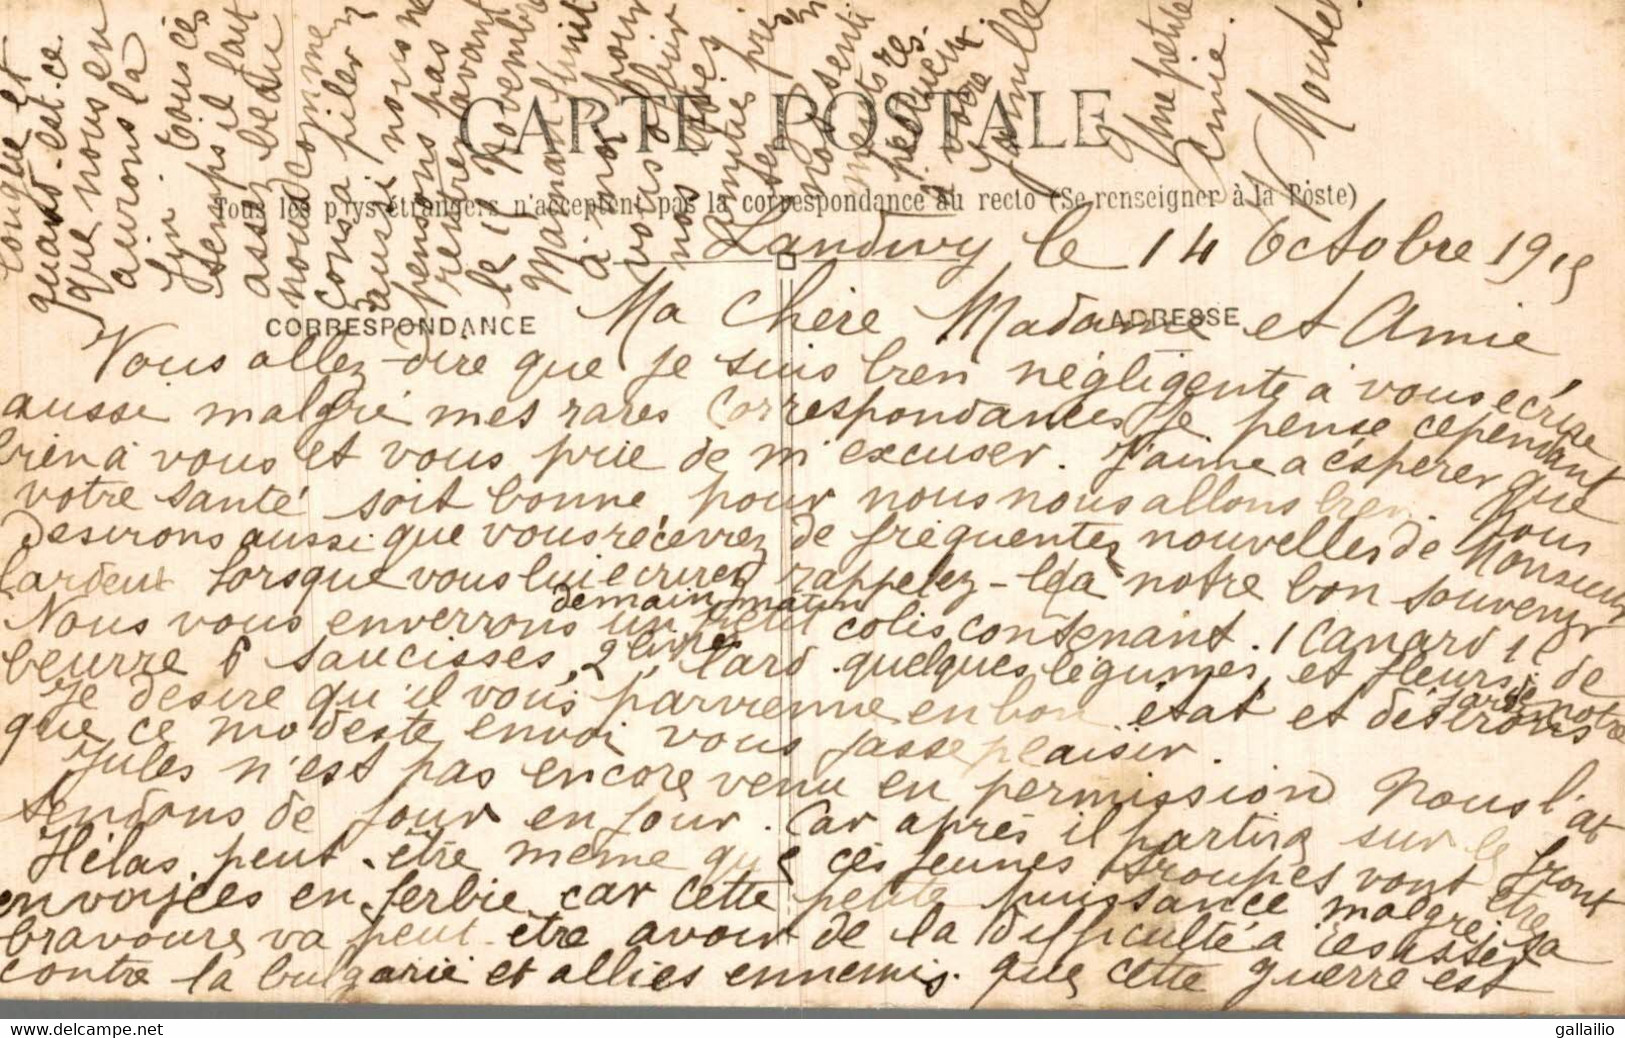 CARTE POSTALE
Tous les pays étrangers n'acceptent pas la correspondance au recto (Se renseigner à la Poste)
CORRESPONDANCE
ADRESSE
Landivy le 14 Octobre 1915
Ma Chère Madame et Amie
Vous allez dire que je suis bien négligente à vous écrire
aussi malgré mes rares correspondances je pense cependant
bien à vous et vous prie de m'excuser. J'aime a éspérer que
votre santé soit bonne, pour nous nous allons bien. Nous
desirons aussi que vous récévrez de fréquentes nouvelles de Monsieur
Lardeux lorsque vous lui ecrirez rappelez-lça notre bon souvenir
Nous vous enverrons demain matin un petit colis contenant. 1 canard 1 £ de
beurre 6 saucisses, 2 livres lard quelques légumes et fleurs de notre jardin
Je desire qu'il vous parvienne en bon état et désirons
que ce modeste envoi vous fasse plaisir.
Jules n'est pas encore venu en permission Nous l'at
tendons de jour en jour. Car après il partira sur le front
Hélas, peut-être même que ces jeunes troupes vont être
envoyées en Serbie car cette petite puissance malgré sa
bravoure va peut-être avoir de la difficulté a résister
contre la bulgarie et alliés ennemis. que cette guerre est
longue et
quand-est-ce
que nous en
aurons la
fin Tous ces
temps il fait
assez beau
nous comme
aussi nous ne
pensons pas
rentrer avant
le 1 Novembre
Maman s'unit
à moi pour
vous offrir
nos
amitiés
nos senti
meilleures.
votre
Une petite
Amie